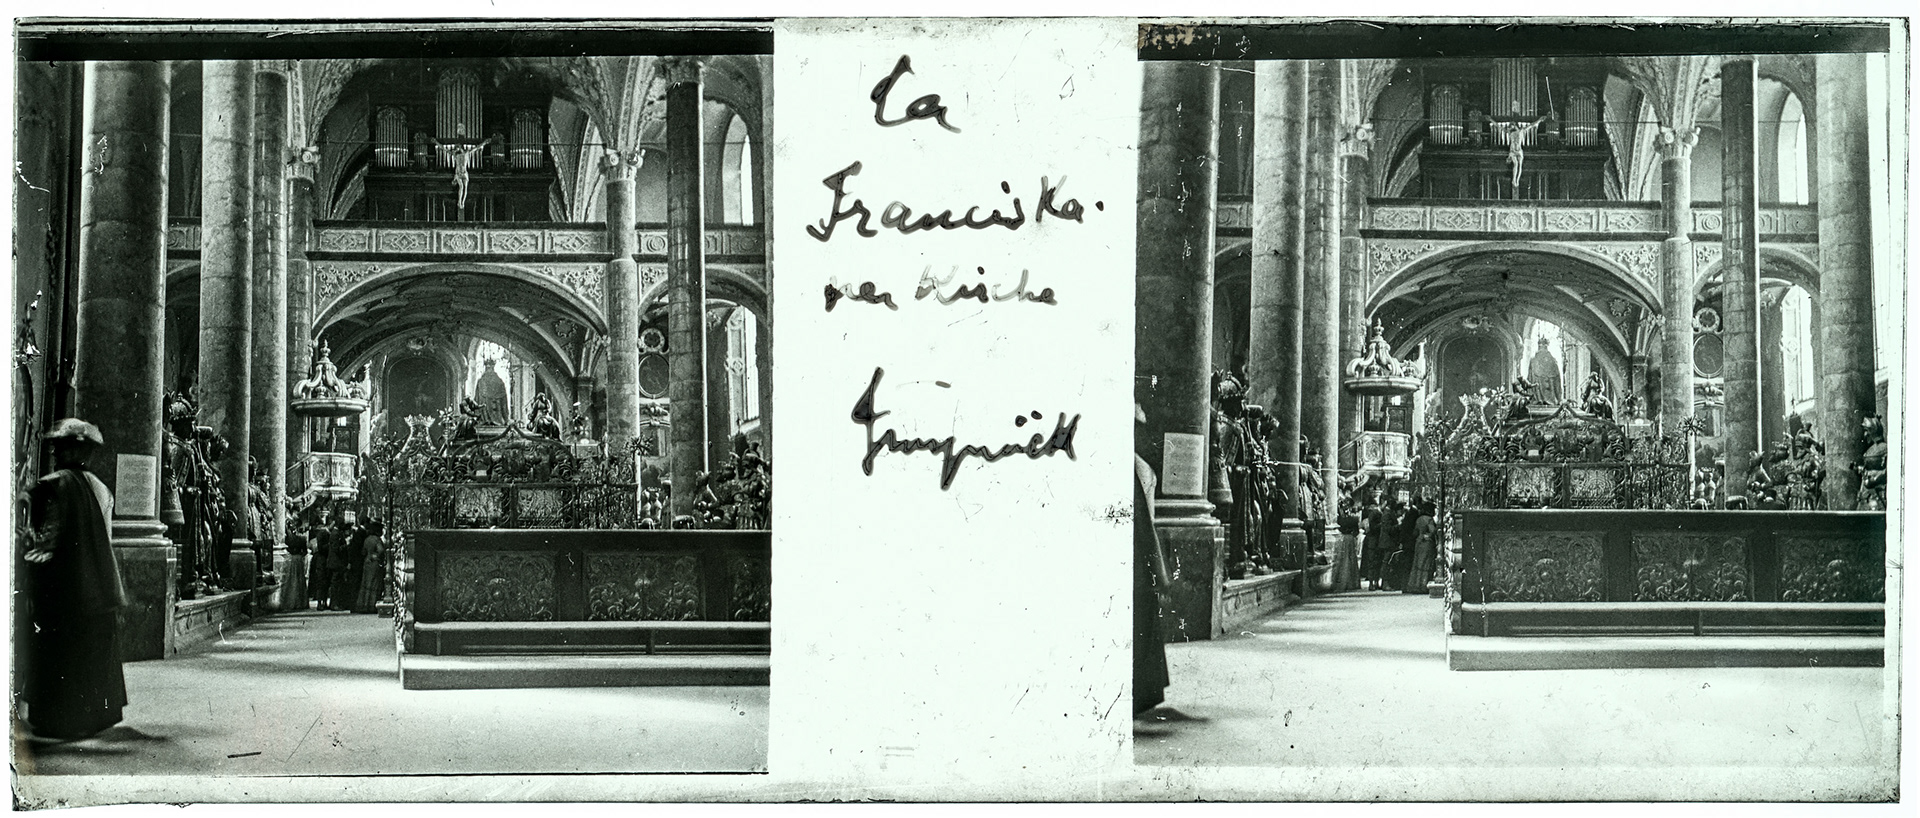 La
Franciska-
ner Kirche
Innspruck